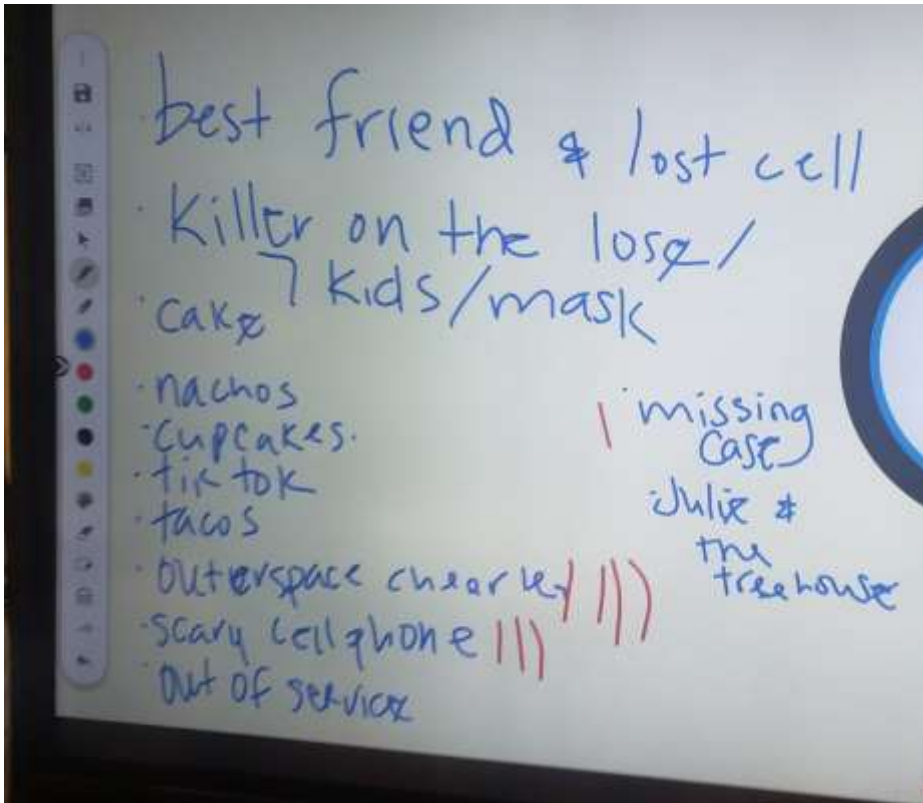 · best friend & lost cell
· Killer on the lose/
7 kids/mask
· cake
· nachos
· cupcakes.
· tik tok
· tacos
· outerspace
· scary cellphone |||
· out of service
| · missing
case
· Julie &
the
treehouse